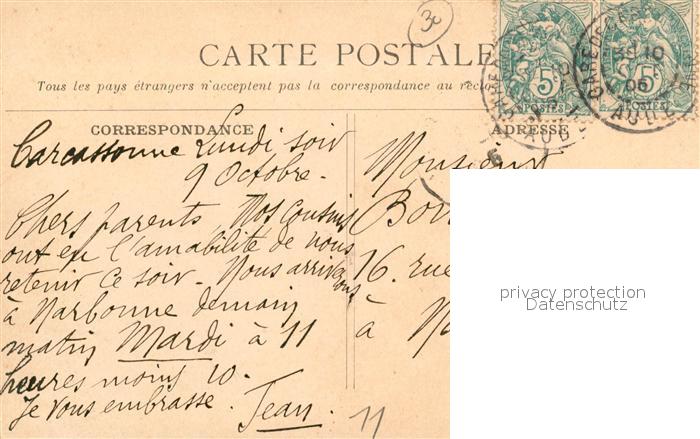 30
CARTE POSTALE
Tous les pays étrangers n'acceptent pas la correspondance au recto
5 5
POSTES POSTES
10
05
AUDE
CORRESPONDANCE
ADRESSE
Carcassonne Lundi soir
9 Octobre.
Chers parents, Nos cousins
ont eu l'amabilité de nous
retenir ce soir. Nous arriverons
à Narbonne demain
matin Mardi à 11
heures moins 10.
Je vous embrasse. Jean.
11
Monsieur
16. rue
à
privacy protection
Datenschutz